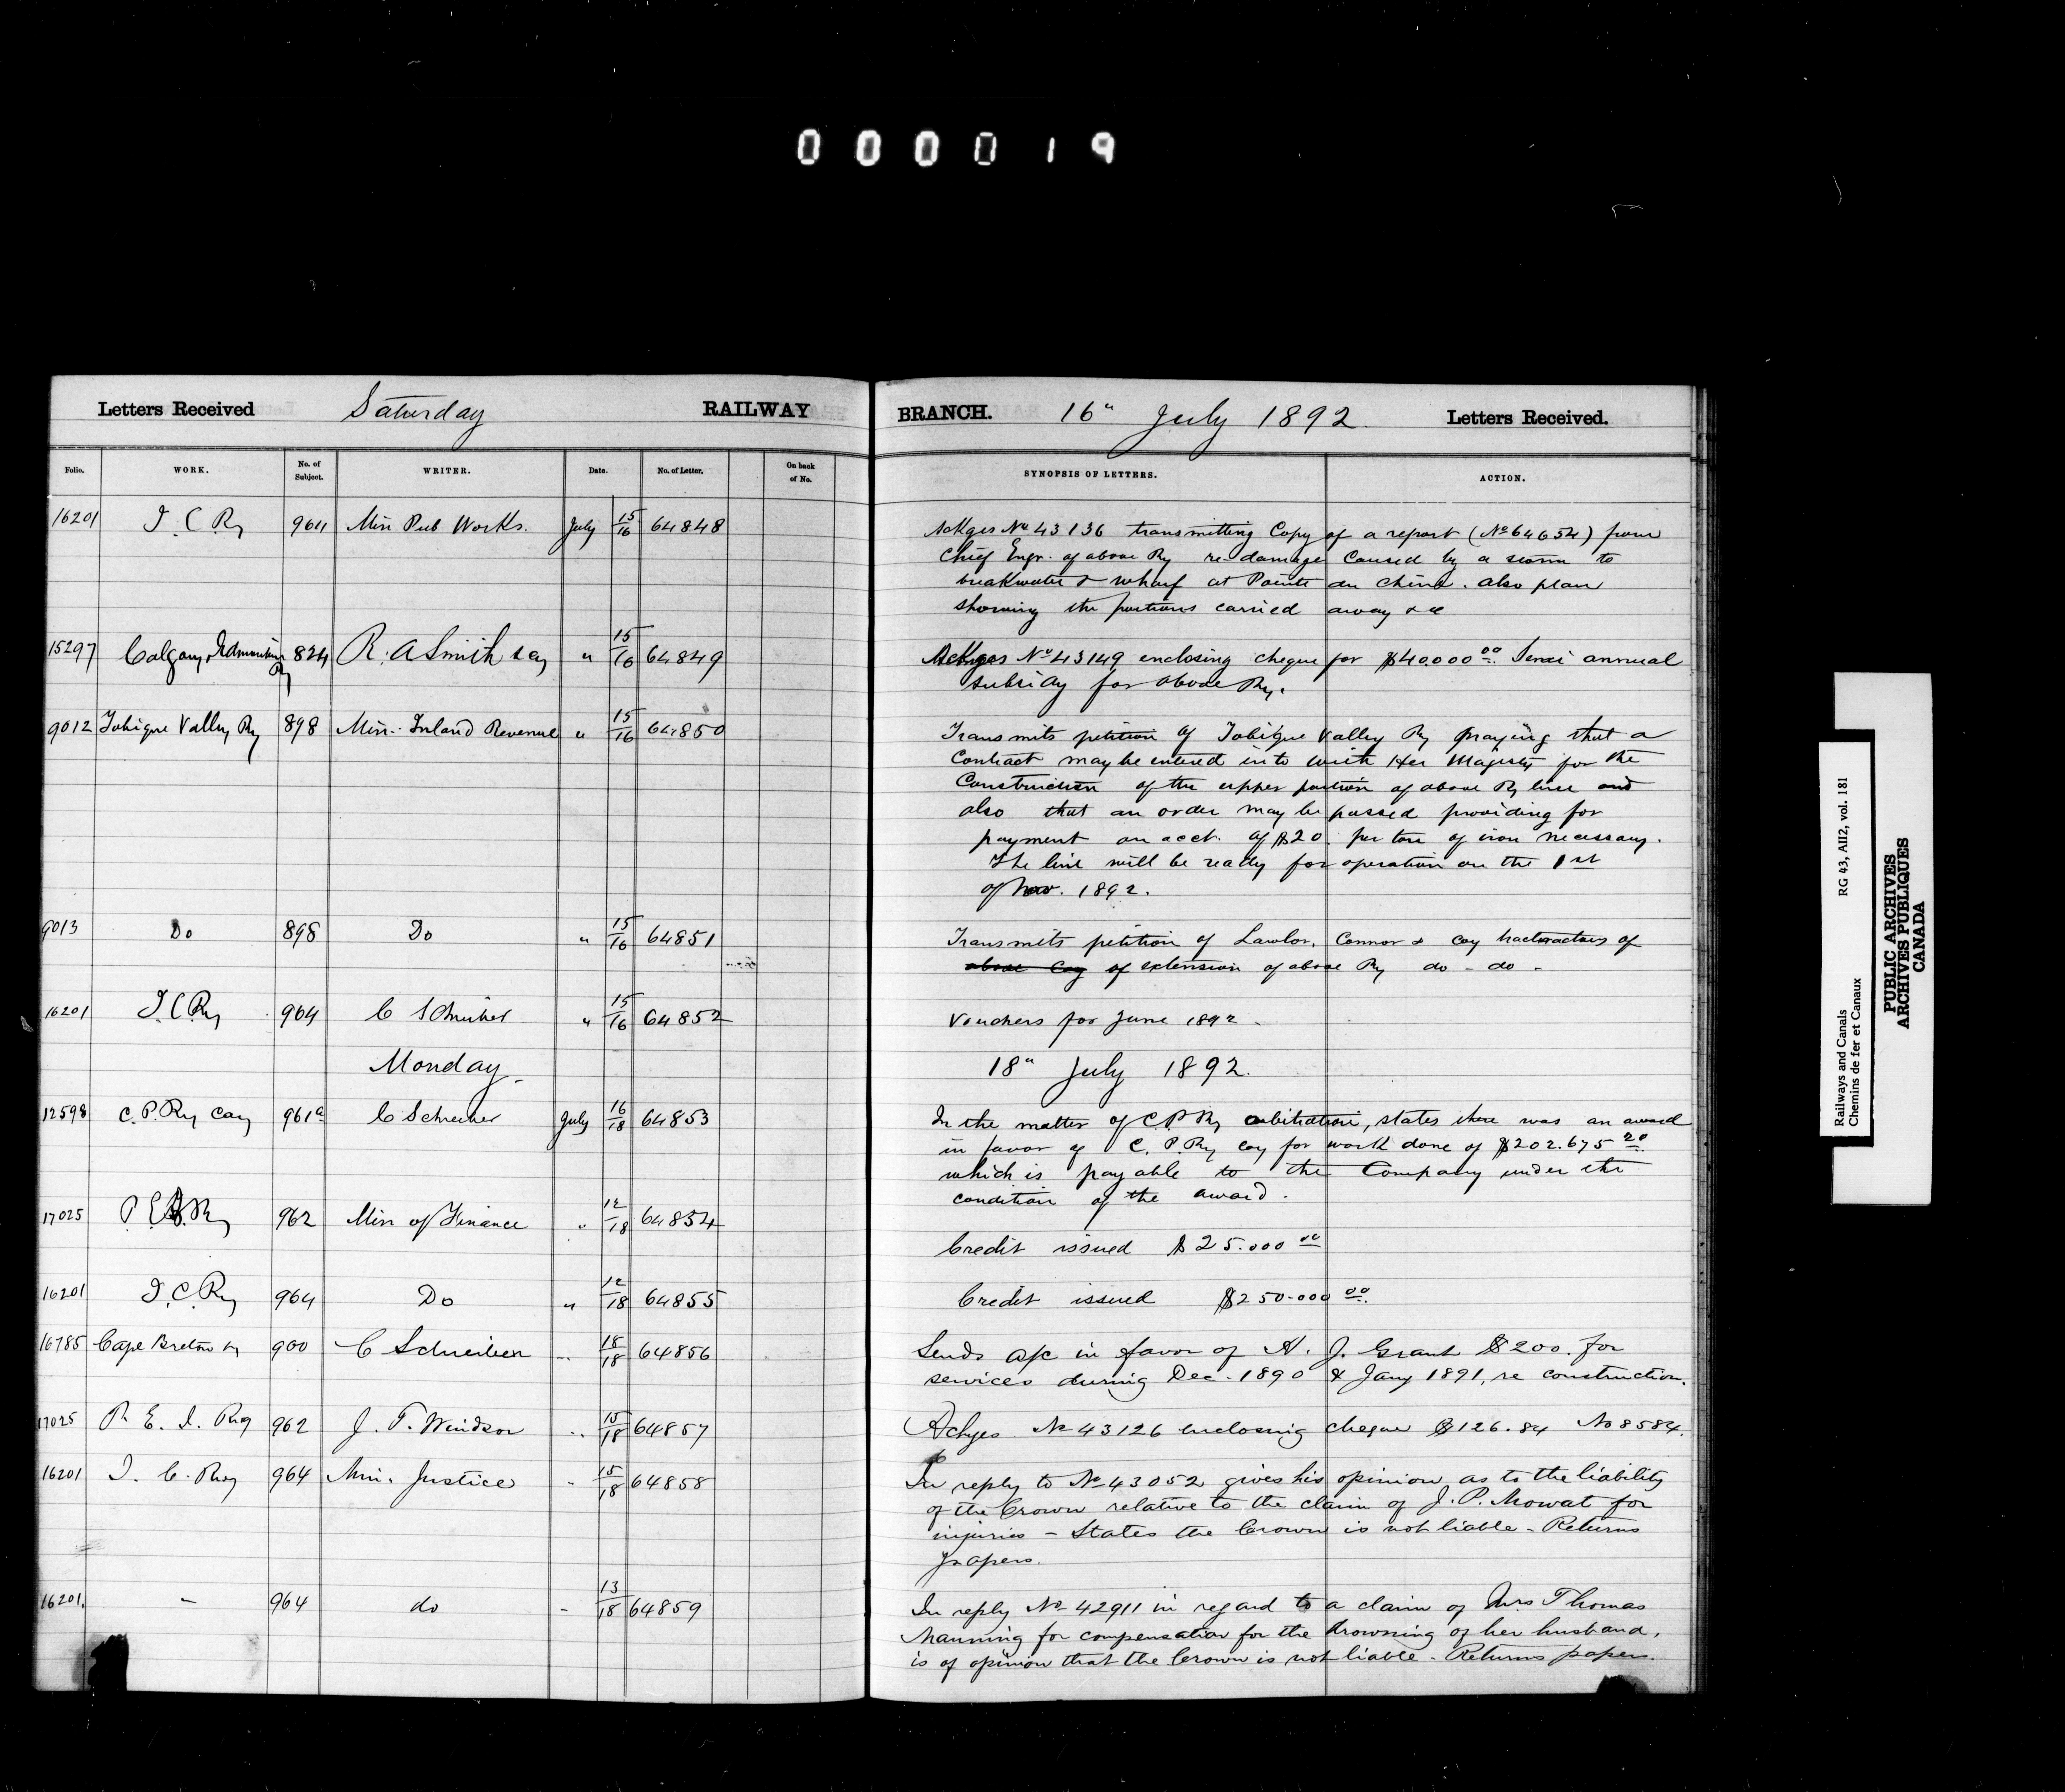 000019
Letters Received Saturday RAILWAY BRANCH. 16" July 1892. Letters Received.
Folio. WORK. No. of Subject. WRITER. Date. No. of Letter. On back of No. SYNOPSIS OF LETTERS. ACTION.
16201 I. C. Ry 964 Min Pub Works. July 15/16 64848 Ackges No 43136 transmitting Copy of a report (No 64654) from
Chief Engr. of above Ry re damage caused by a storm to
breakwater & wharf at Pointe du Chene. also plan
showing the portions carried away &c
15297 Calgary & Edmonton Ry 824 R. A Smith " 15/16 64849 Ackges No 43149 enclosing cheque for $40.000 00. Semi annual
subsidy for above Ry.
9012 Tobique Valley Ry 898 Min. Inland Revenue " 15/16 64850 Transmits petition of Tobique Valley Ry praying that a
Contract may be entered into with Her Majesty for the
Construction of the upper portion of above Ry line and
also that an order may be passed providing for
payment on acct. of $20. per ton of iron necessary.
The line will be ready for operation on the 1st
of Nov. 1892.
9013 Do 898 Do " 15/16 64851 Transmits petition of Lawlor, Connor & Coy of
above Coy of extension of above Ry do - do -
16201 I. C. Ry 964 C Schreiber " 15/16 64852 Vouchers for June 1892 -
Monday 18" July 1892.
12598 C. P. Ry Coy 961a C Schreiber July 16/18 64853 In the matter of C. P. Ry arbitration, states there was an award
in favor of C. P. Ry Coy for work done of $202.675 20
which is payable to the Company under the
condition of the award.
17025 P. E. I. Ry 962 Min of Finance " 12/18 64854
Credit issued $25.000 00
16201 I. C. Ry 964 Do " 12/18 64855 Credit issued $250.000 00.
16785 Cape Breton Ry 900 C Schreiber " 18/18 64856 Sends a/c in favor of H. J. Grant $200. for
services during Dec. 1890 & Jany 1891, re construction.
17025 P. E. I. Ry 962 J. T. Windsor " 15/18 64857 Ackges No 43126 enclosing cheque $126.84 No 8584.
16201 I. C. Ry 964 Min. Justice " 15/18 64858 In reply to No 43052 gives his opinion as to the liability
of the Crown relative to the claim of J. P. Mowat for
injuries - States the Crown is not liable - Returns
papers.
16201. - 964 do - 13/18 64859 In reply No 42911 in regard to a claim of Mrs Thomas
Manning for compensation for the drowning of her husband,
is of opinion that the Crown is not liable. Returns papers.
Railways and Canals RG 43, AII2, vol. 181
Chemins de fer et Canaux
PUBLIC ARCHIVES
ARCHIVES PUBLIQUES
CANADA